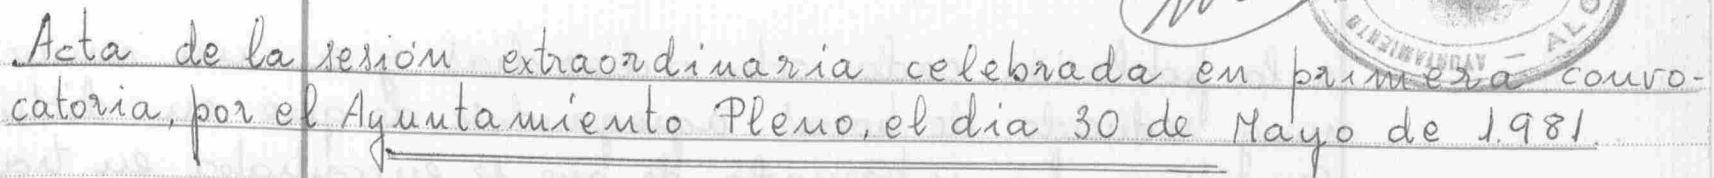 Acta de la sesión extraordinaria celebrada en primera convo-
catoria, por el Ayuntamiento Pleno, el dia 30 de Mayo de 1.981.
AYUNTAMIENTO — ALO